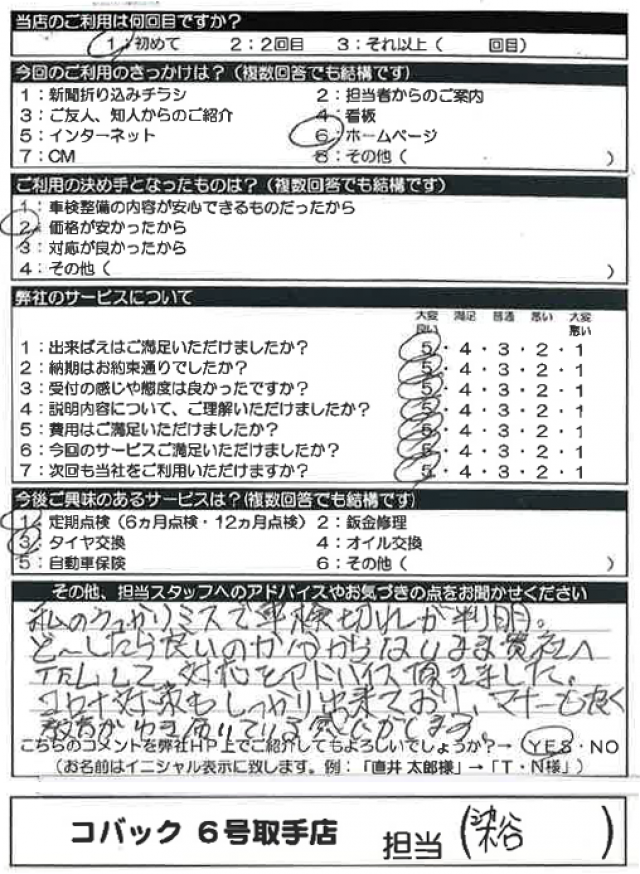 当店のご利用は何回目ですか?
1:初めて 2:2回目 3:それ以上( 回目)
今回のご利用のきっかけは?(複数回答でも結構です)
1:新聞折り込みチラシ 2:担当者からのご案内
3:ご友人、知人からのご紹介 4:看板
5:インターネット 6:ホームページ
7:CM 8:その他( )
ご利用の決め手となったものは?(複数回答でも結構です)
1:車検整備の内容が安心できるものだったから
2:価格が安かったから
3:対応が良かったから
4:その他( )
弊社のサービスについて
大変良い 満足 普通 悪い 大変悪い
1:出来ばえはご満足いただけましたか? 5・4・3・2・1
2:納期はお約束通りでしたか? 5・4・3・2・1
3:受付の感じや態度は良かったですか? 5・4・3・2・1
4:説明内容について、ご理解いただけましたか? 5・4・3・2・1
5:費用はご満足いただけましたか? 5・4・3・2・1
6:今回のサービスご満足いただけましたか? 5・4・3・2・1
7:次回も当社をご利用いただけますか? 5・4・3・2・1
今後ご興味のあるサービスは?(複数回答でも結構です)
1:定期点検(6ヵ月点検・12ヵ月点検) 2:鈑金修理
3:タイヤ交換 4:オイル交換
5:自動車保険 6:その他( )
その他、担当スタッフへのアドバイスやお気づきの点をお聞かせください
私のうっかりミスで車検切れが判明。
ど〜したら良いのか分からないまま貴社へ
TELして、対応をアドバイス頂きました。
コロナ対策もしっかり出来ており、マナーも良く
教育がゆき届いている感じがします。
こちらのコメントを弊社HP上でご紹介してもよろしいでしょうか?→ YES・NO
(お名前はイニシャル表示に致します。例:「直井 太郎様」→「T・N様」)
コバック 6号取手店 担当(染谷 )